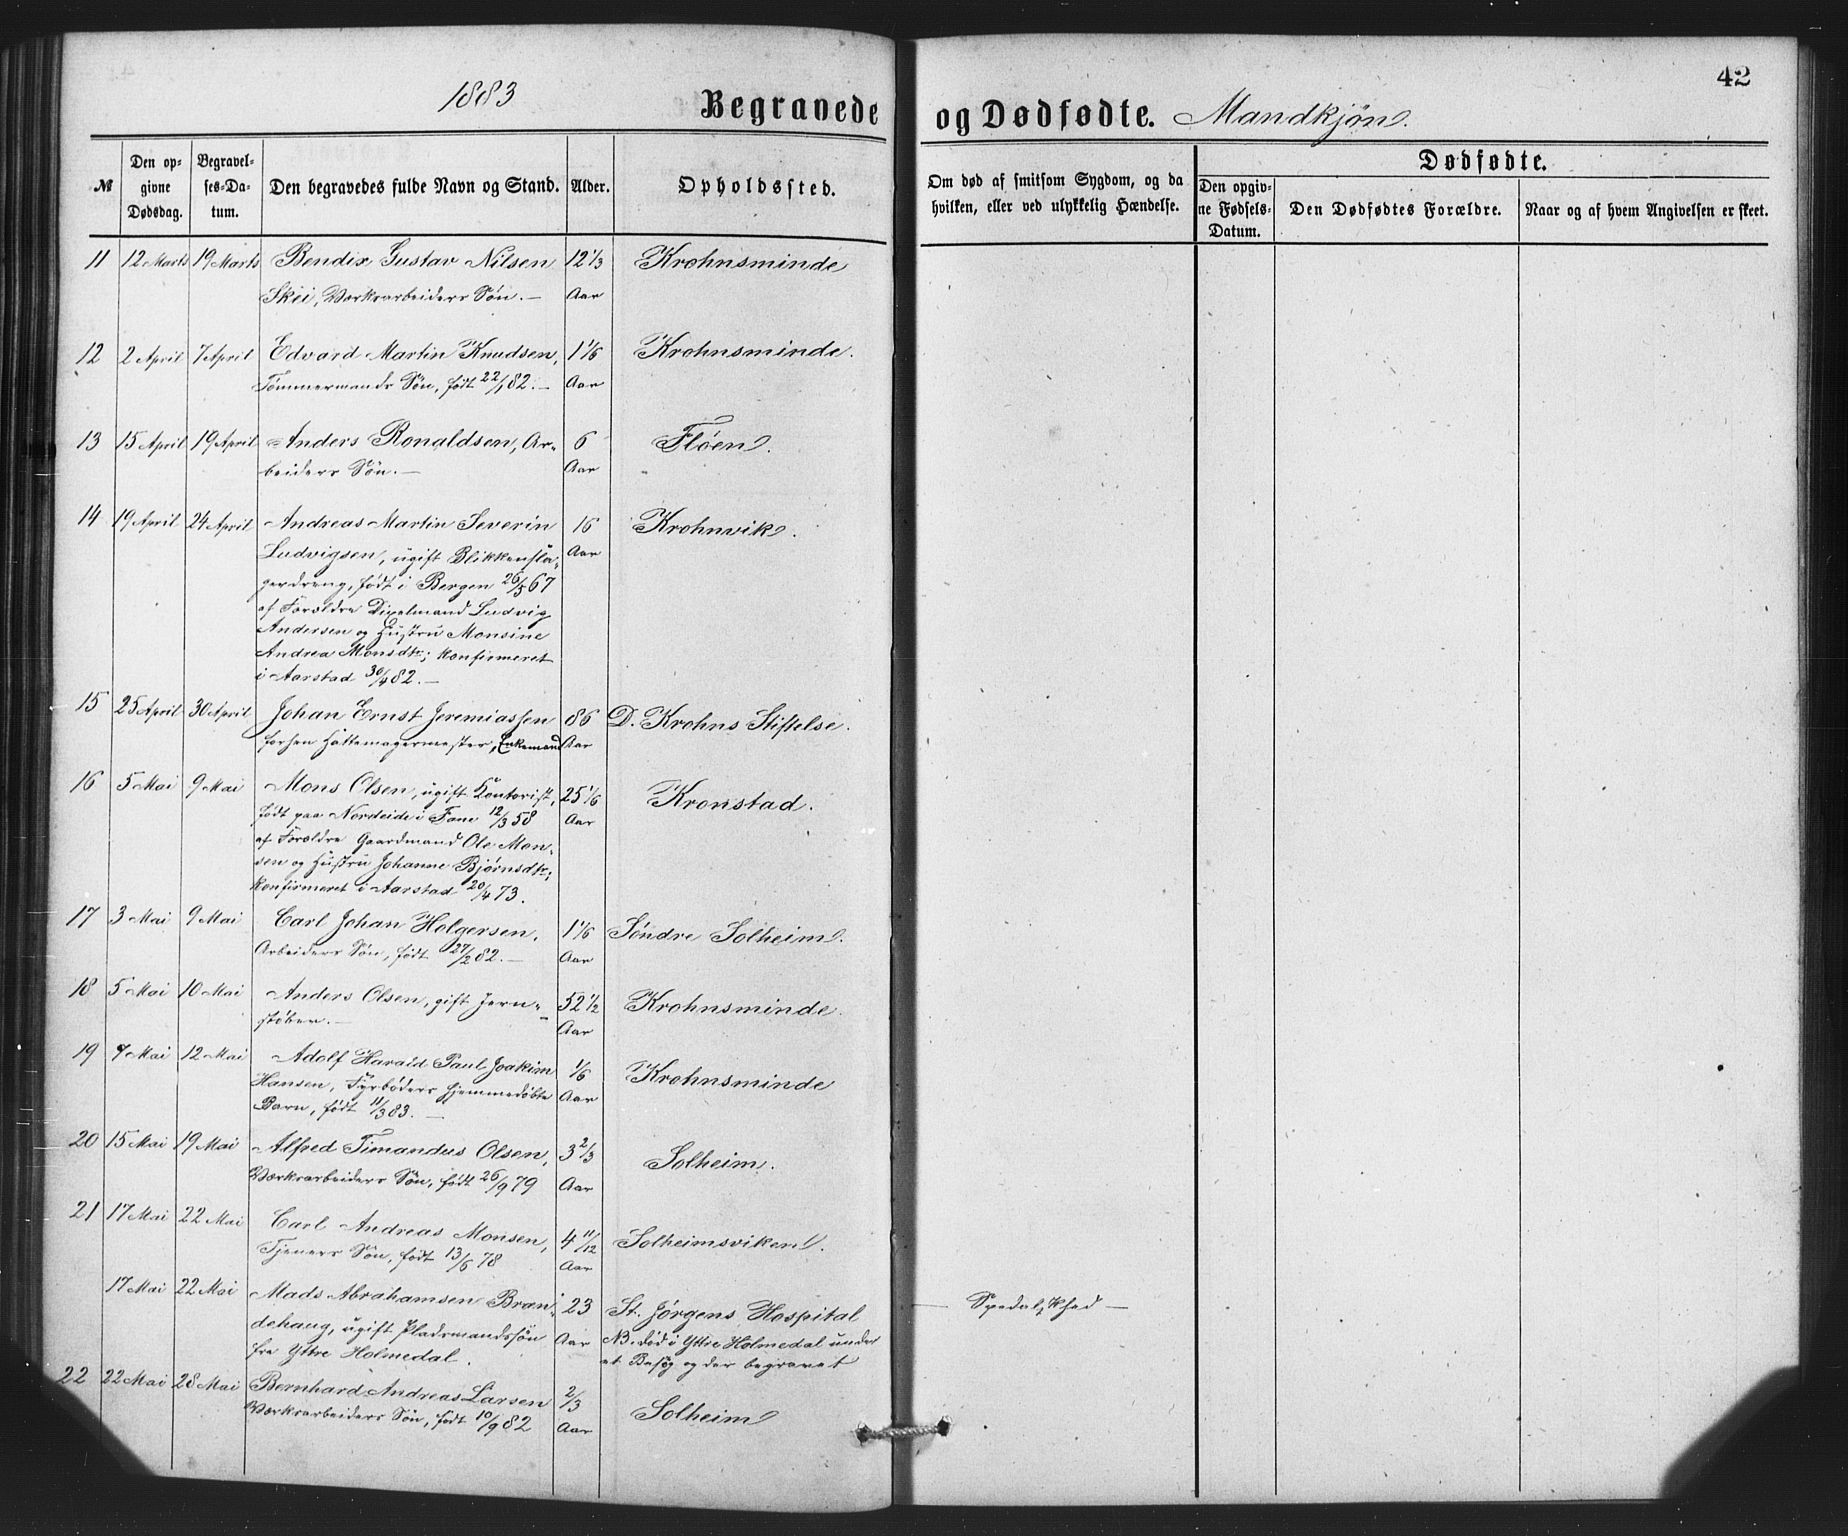 1883
Begravede og Dødfødte. Mandkjøn.
42
№
Den opgivne Dødsdag.
Begravelses-Datum.
Den begravedes fulde Navn og Stand.
Alder.
Opholdssted.
Om død af smitsom Sygdom, og da hvilken, eller ved ulykkelig Hændelse.
Dødfødte.
Den opgivne Fødsels-Datum.
Den Dødfødtes Forældre.
Naar og af hvem Angivelsen er skeet.
11 12 Marts 19 Marts Bendix Gustav Nilsen 12 1/3 Krohnsminde
Skei, Værksarbeiders Søn. — Aar
12 2 April 7 April Edvard Martin Knudsen, 1 1/6 Krohnsminde.
Tømmermands Søn, født 22/1 82. — Aar
13 15 April 19 April Anders Ronaldsen, Ar- 6 Fløen.
beiders Søn. — Aar
14 19 April 24 April Andreas Martin Severin 16 Krohnvik.
Ludvigsen, ugift Blikkensla- Aar
gerdreng, født i Bergen 26/5 67
af Forældre Dixelmand Ludvig
Andersen og Hustru Monsine
Andrea Monsdtr; konfirmeret
i Aarstad 30/4 82. —
15 25 April 30 April Johan Ernst Jeremiassen 86 D. Krohns Stiftelse.
forhen Hattemagermester, Enkemand Aar
16 5 Mai 9 Mai Mons Olsen, ugift Kontorist, 25 1/6 Kronstad.
født paa Nordeide i Fane 12/3 58 Aar
af Forældre Gaardmand Ole Mon-
sen og Hustru Johanne Bjørnsdtr;
konfirmeret i Aarstad 20/4 73.
17 3 Mai 9 Mai Carl Johan Holgersen, 1 1/6 Søndre Solheim.
Arbeiders Søn, født 27/2 82. — Aar
18 5 Mai 10 Mai Anders Olsen, gift Jern- 52 1/2 Krohnsminde.
støber. — Aar
19 7 Mai 12 Mai Adolf Harald Paul Joakim 1/6 Krohnsminde
Hansen, Fyrbøders hjemmedøbte Aar
Barn, født 11/3 83. —
20 15 Mai 19 Mai Alfred Timandus Olsen, 3 2/3 Solheim.
Værksarbeiders Søn, født 26/9 79 Aar
21 17 Mai 22 Mai Carl Andreas Monsen, 4 11/12 Solheimsviken.
Tjeners Søn, født 13/6 78 Aar
17 Mai 22 Mai Mads Abrahamsen Bran- 23 St. Jørgens Hospital — Spedalskhed —
dehaug, ugift Pladsmandssøn Aar NB. død i Yttre Holmedal under
fra Yttre Holmedal. et Besøg og der begravet
22 22 Mai 28 Mai Bernhard Andreas Larsen 2/3 Solheim
Værksarbeiders Søn, født 10/9 82 Aar